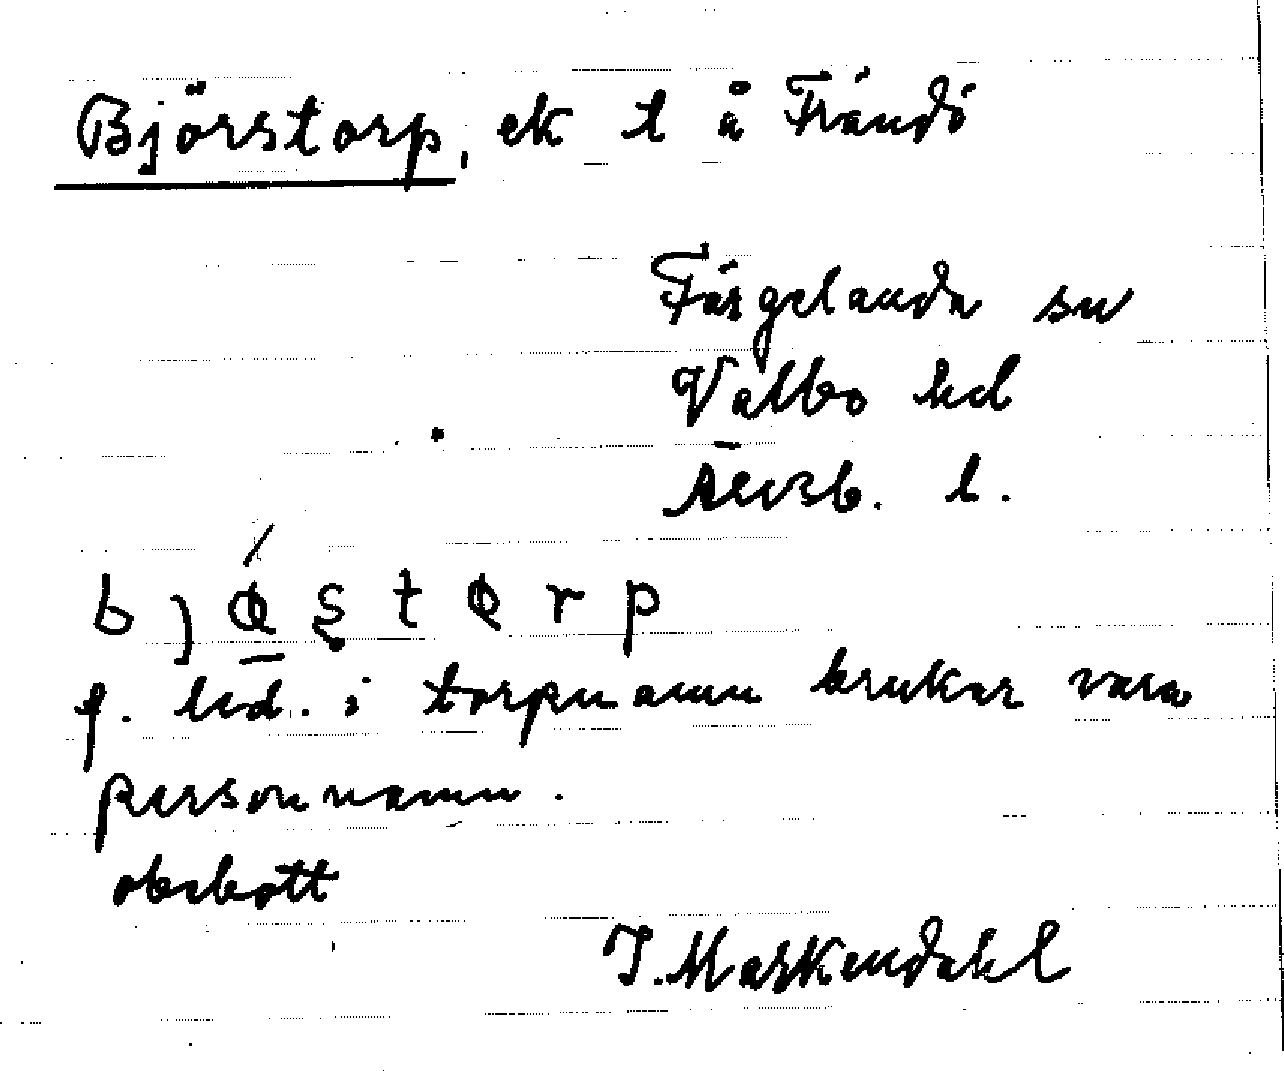 Björstorp, ek t å Frändö
Färgelanda sn
Valbo hd
Älvsb. l.
f. led. i torpnamn brukar vara
personnamn.
obebott
J. Markendahl